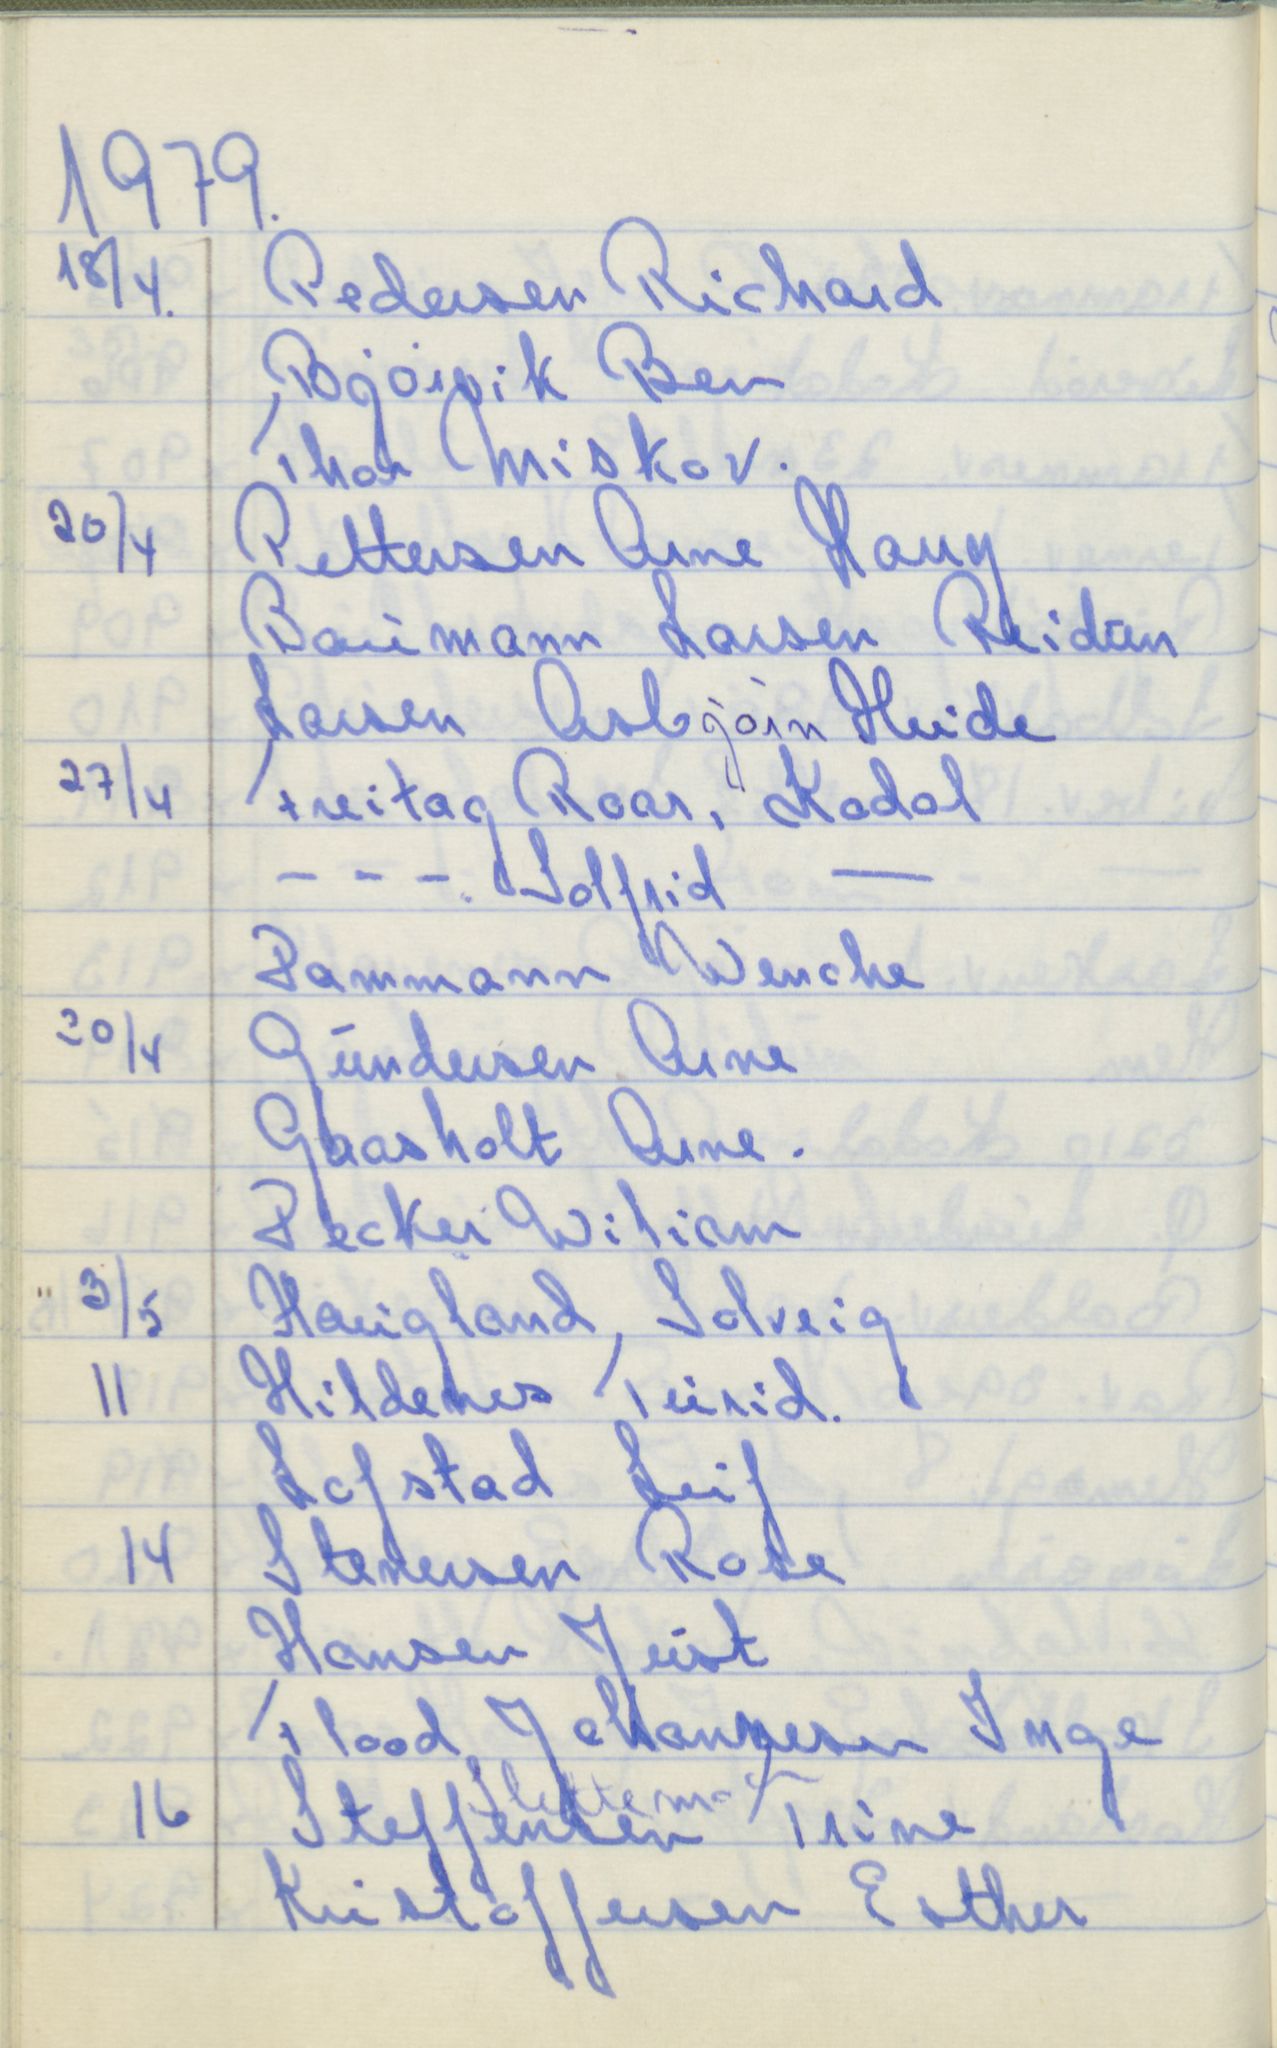 1979.
18/4. Pedersen Richard
Bjørvik Ben
Thor Miskov.
20/4 Pettersen Arne Haug
Baumann Larsen Reidun
Larsen Asbjørn Heide
27/4 Freitag Roar, Kodal
- - - . Solfrid —
Pammann Wenche
20/4 Gundersen Arne
Gaasholt Arne.
Pecker Wiliam
" 3/5 Haugland, Solveig
11 Hildenes Turid.
Lofstad Leif
14 Stenersen Rose
Hansen Just
Flood, Johannesen Inge
Slettemo
16 Steffensen Trine
Kristoffersen Esther